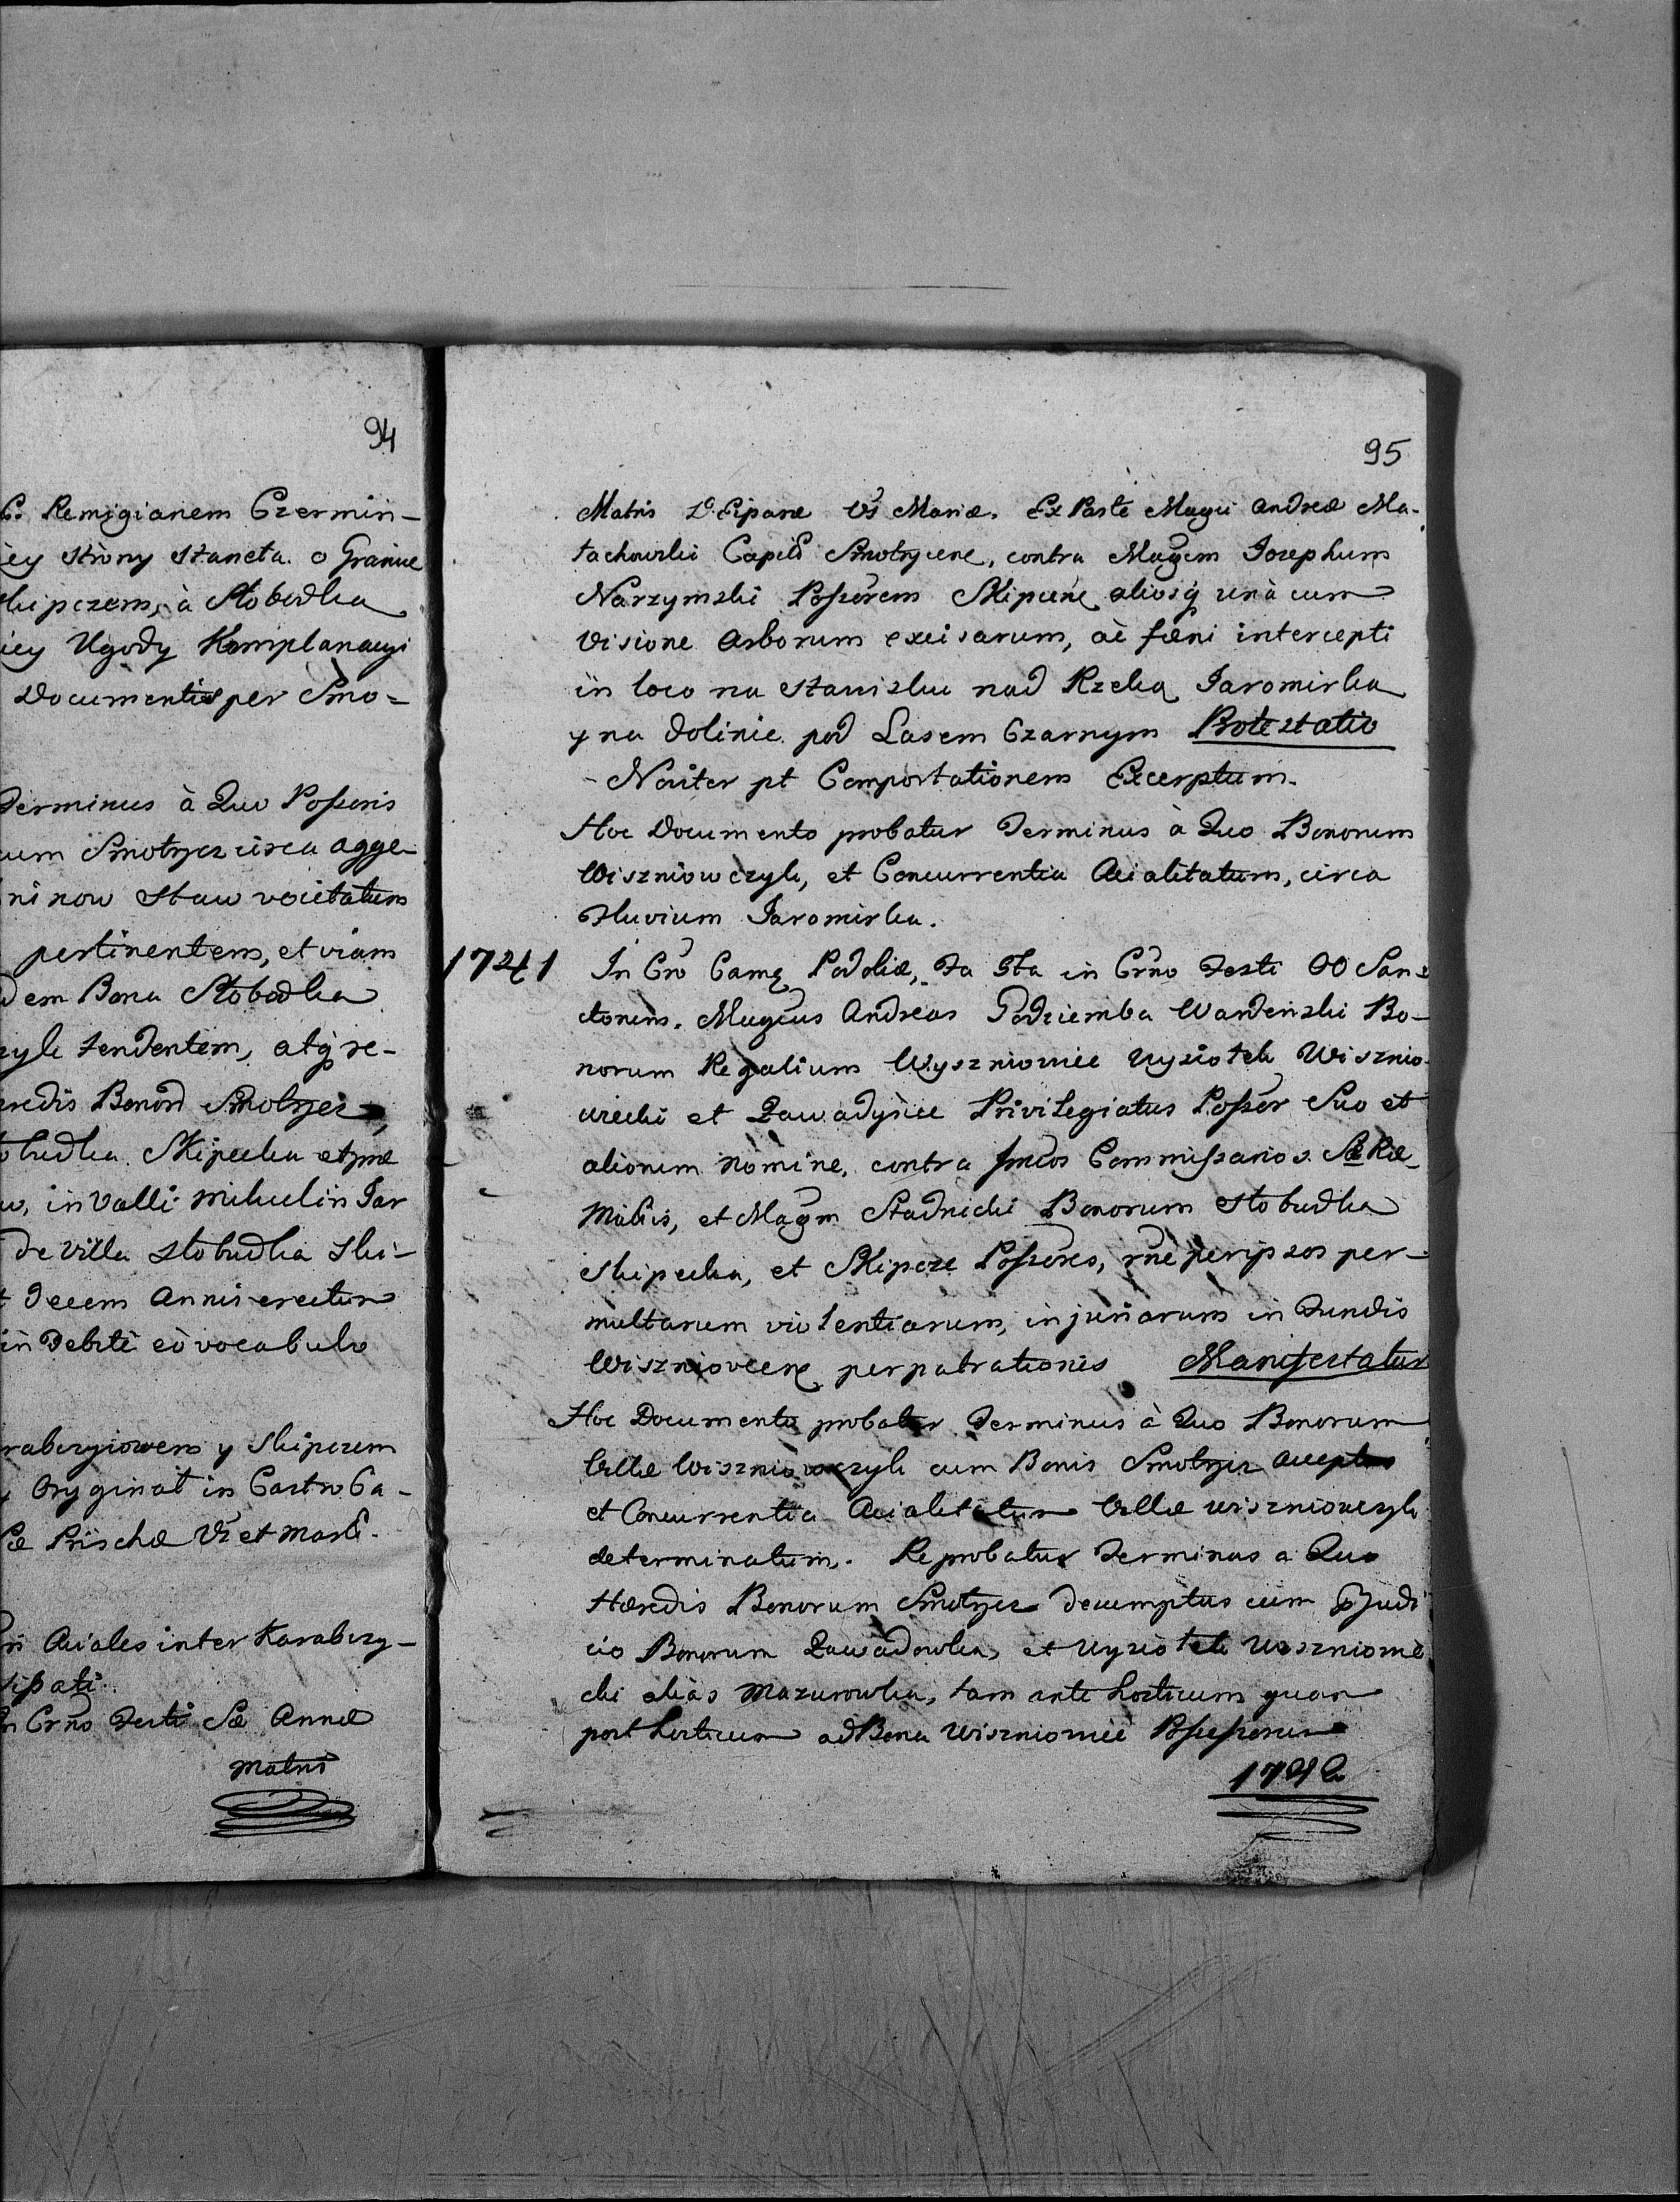 94
Remigianem Czermin-
ey strony stancta. o Granice
Skipczem, à Slobodka
iey Ugody Komplanacyi
Documentis per Smo-
Terminus à Quo Posseris
cum Smotrycz circa agge-
ninow Staw vocitatum
pertinentem, et viam
dem Bona Slobodka
czyk tendentem, atq re-
redis Bonor Smotrycz,
Skipecka
in Valli
de Villa Slobudka Ski-
t Decem Annis erectum
in Debite eo vocabulo
y Skipczem
y Oryginał in Castro Ca-
Priscæ V et Mart.
Aciales inter Karabczy-
sipati.
In Crno Festi Sæ Annæ
Matris
95
Matris D. Eiparæ Vs Mariæ. Ex Parte Magci Andreæ Ma-
łachowski Capei Smotrycen, contra Magcm Josephum
Narzymski Possorem Skipcen aliosq unà cum
Visione Arborum excisarum, ac fæni intercepti
in loco na Stawisku nad Rzeką Jaromirką
y na dolinie pod Lasem Czarnym Protestatio
Noviter pt Comportationem Excerptum.
Hoc Documento probatur Terminus à Quo Bonorum
Wiszniowczyk, et Concurrentia Acialitatum, circa
Fluvium Jaromirka.
1741 In Cro Camę Podoliæ, Fa 5ta in Crno Festi OO San-
ctorum. Magcus Andreas Podziemba Wardenski Bo-
norum Regalium Wyszniowiec Uyziotek Wisznio-
wiecki et Zawadyńce Privilegiatus Possor Suo et
aliorum nomine, contra Commissarios Sæ Ræ
Mattis, et Magm Stadnicki Bonorum Slobudka
Skipecka, et Skipcze Possores, rne per ipsos per-
multarum violentiarum, injuriarum in Fundis
Wiszniovcen perpatrationis Manifestatur
Hoc Documento probatur Terminus à Quo Bonorum
Villæ Wiszniowczyk cum Bonis Smotrycz acceptus
et Concurrentia Acialitatum Villæ Wiszniowczyk
determinatum. Reprobatur Terminus a Quo
Hæredis Bonorum Smotrycz decumptus cum
cio Bonorum Zawadowka, et Uyziotek Woszniowie
cki aliàs Mazurowka, tam ante hosticum quam
post hosticum ad Bona Wiszniowiec Possessorum
1742